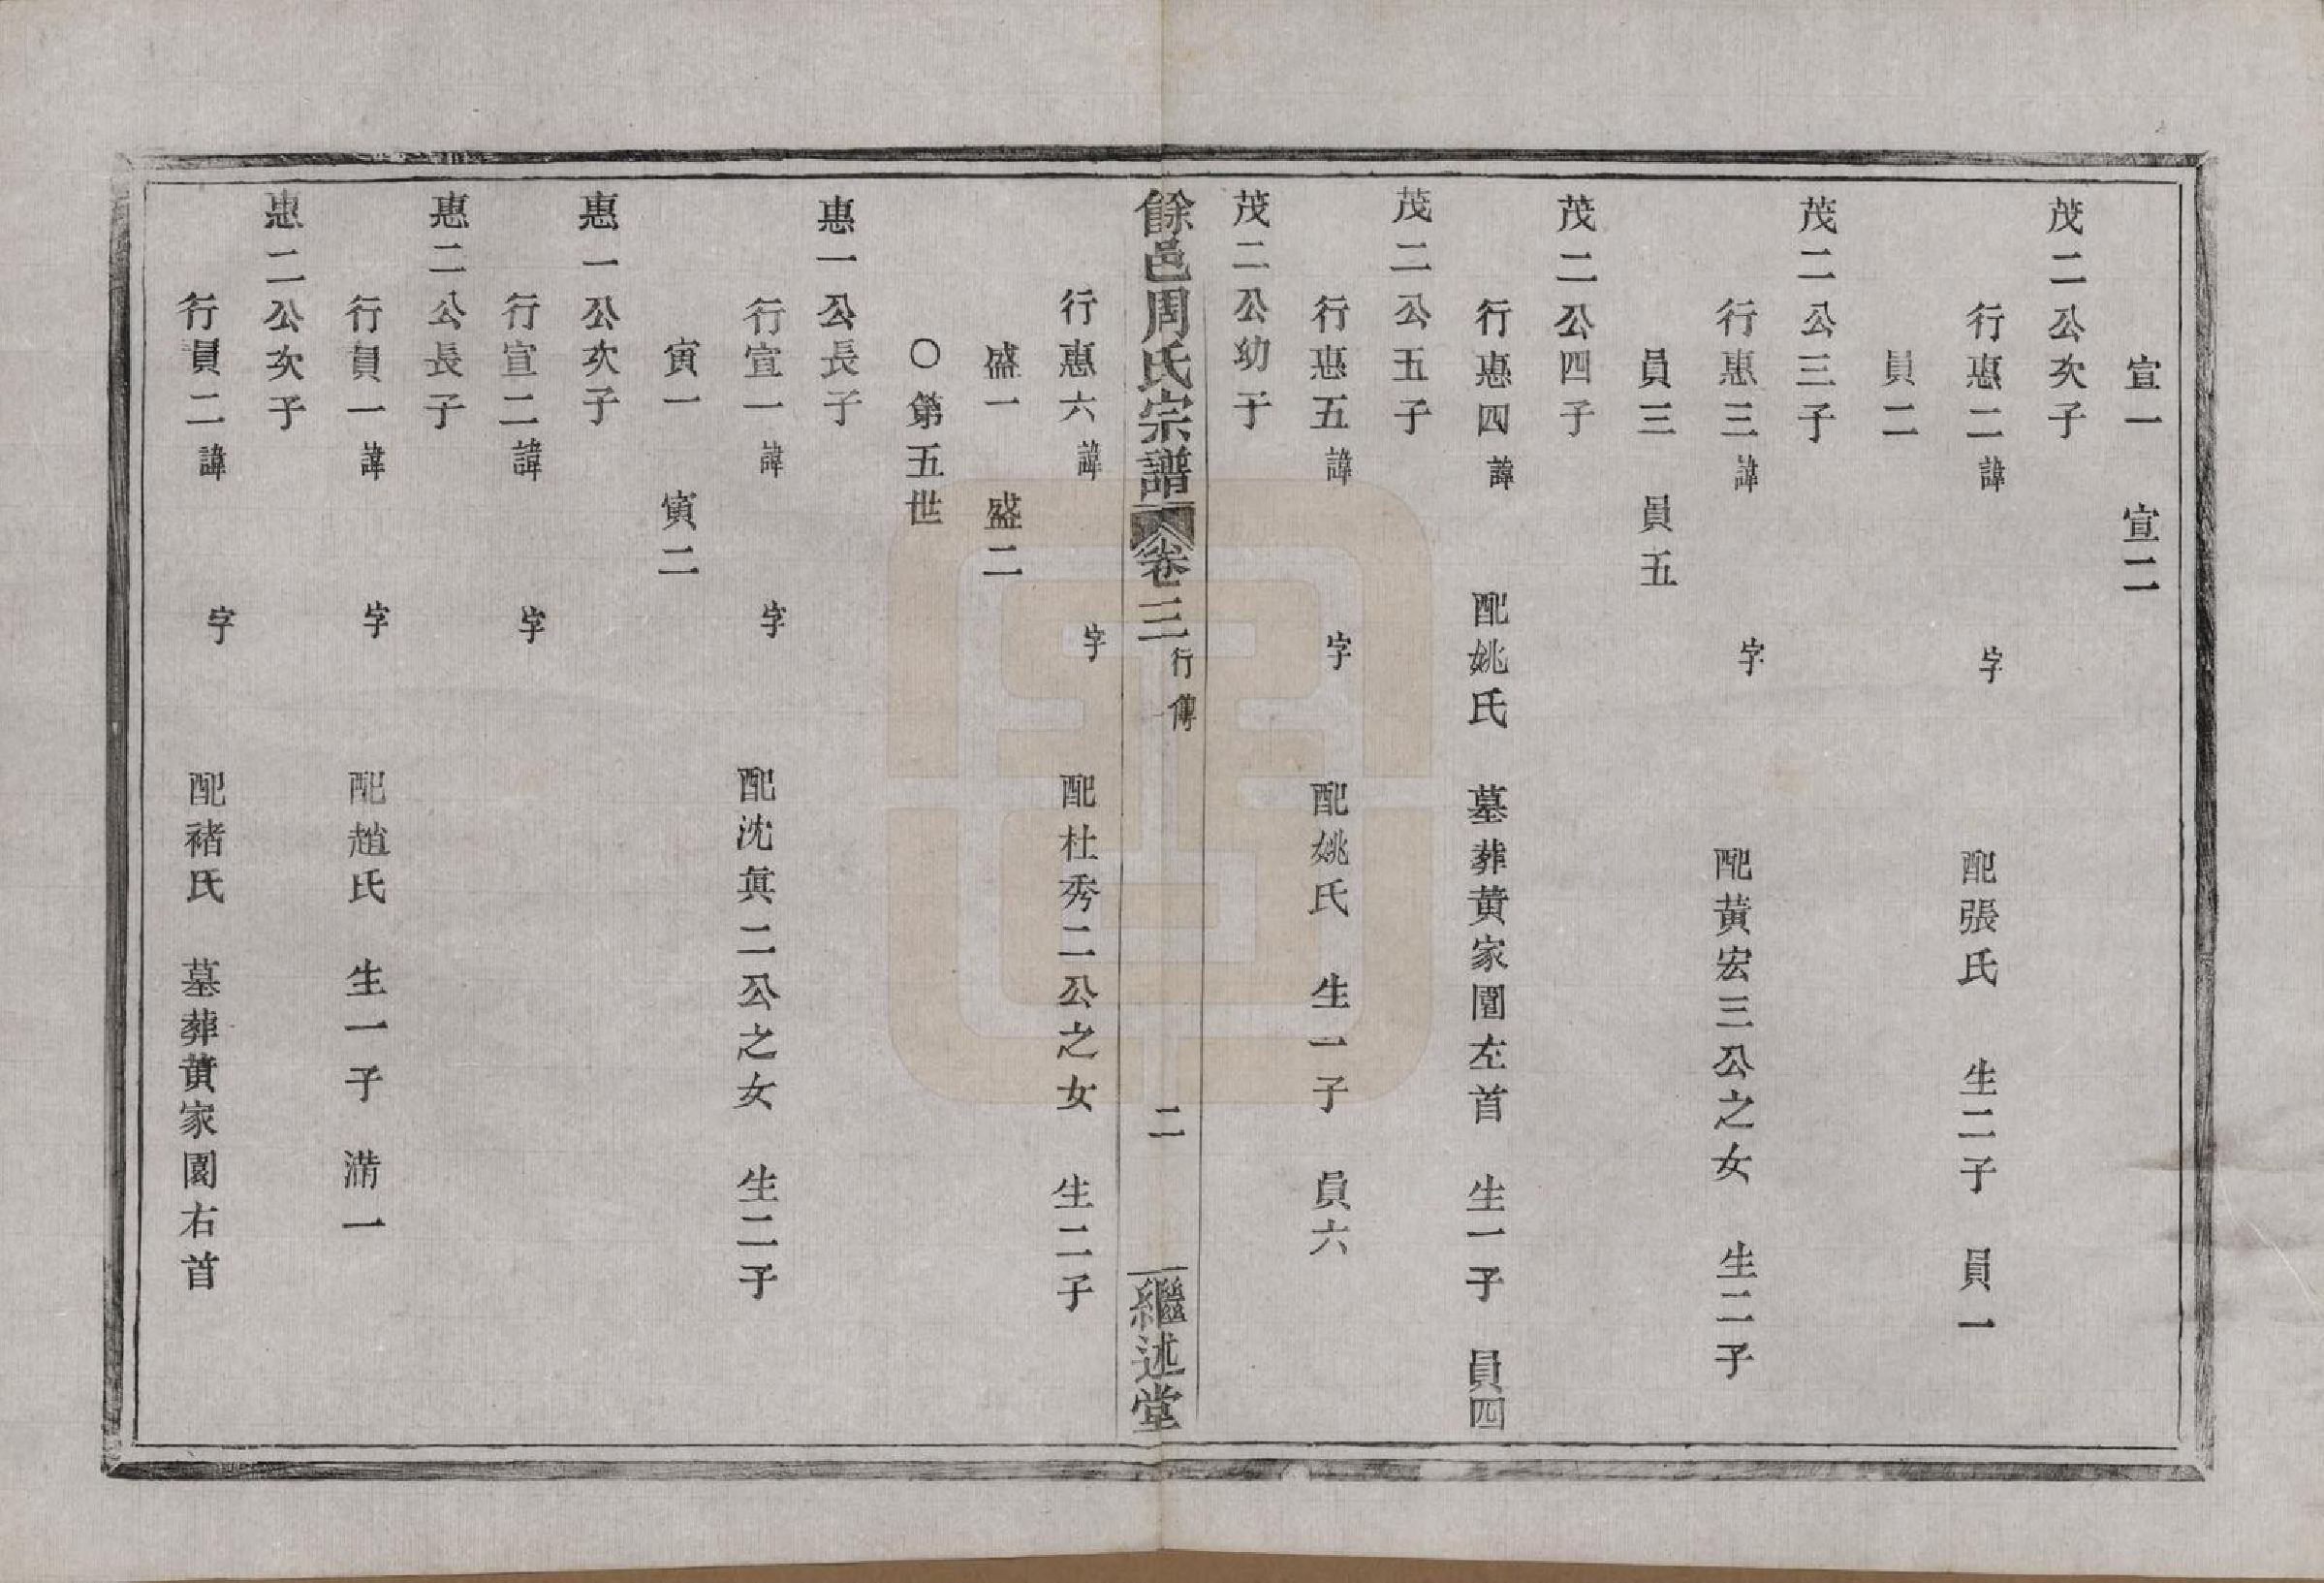 宣一　宣二
茂二公次子
行惠二諱　字　配張氏　生二子　員一
員二
茂二公三子
行惠三諱　字　配黃宏三公之女　生二子
員三　員五
茂二公四子
行惠四諱　配姚氏　墓葬黄家園左首　生一子　員四
茂二公五子
行惠五諱　字　配姚氏　生一子　員六
茂二公幼子
餘邑周氏宗譜　卷三　行傳　二　繼述堂
行惠六諱　字　配杜秀二公之女　生二子
盛一　盛二
〇第五世
惠一公長子
行宣一諱　字　配沈眞二公之女　生二子
寅一　寅二
惠一公次子
行宣二諱　字
惠二公長子
行員一諱　字　配趙氏　生一子　滿一
惠二公次子
行員二諱　字　配褚氏　墓葬黄家園右首